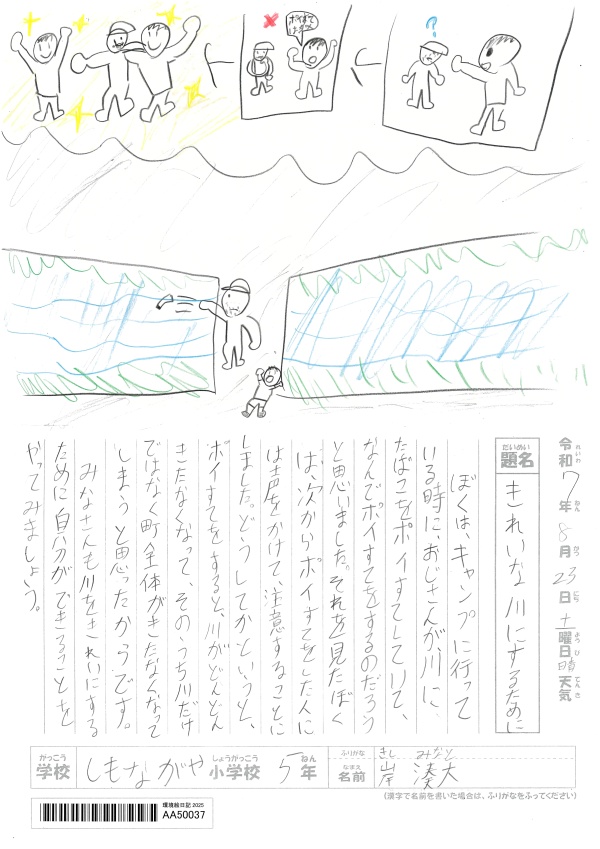 ポイすて
はダメ
?
令和7年8月23日土曜日晴天気
れいわ ねん がつ にち ようび てんき
だいめい
題名
きれいな川にするために
ぼくは、キャンプに行って
いる時に、おじさんが、川に、
たばこをポイすてしていて、
なんでポイすてをするのだろう
と思いました。それを見たぼく
は、次からポイすてをした人に
は声をかけて、注意することに
しました。どうしてかというと、
ポイすてをすると、川がどんどん
きたなくなって、そのうち川だけ
ではなく町全体がきたなくなって
しまうと思ったからです。
みなさんも川をきれいにする
ために自分ができることを
やってみましょう。
がっこう しょうがっこう ねん
学校 しもながや小学校 5年
ふりがな きし みなと
なまえ
名前 岸 湊大
(漢字で名前を書いた場合は、ふりがなをふってください)
環境絵日記 2025
AA50037